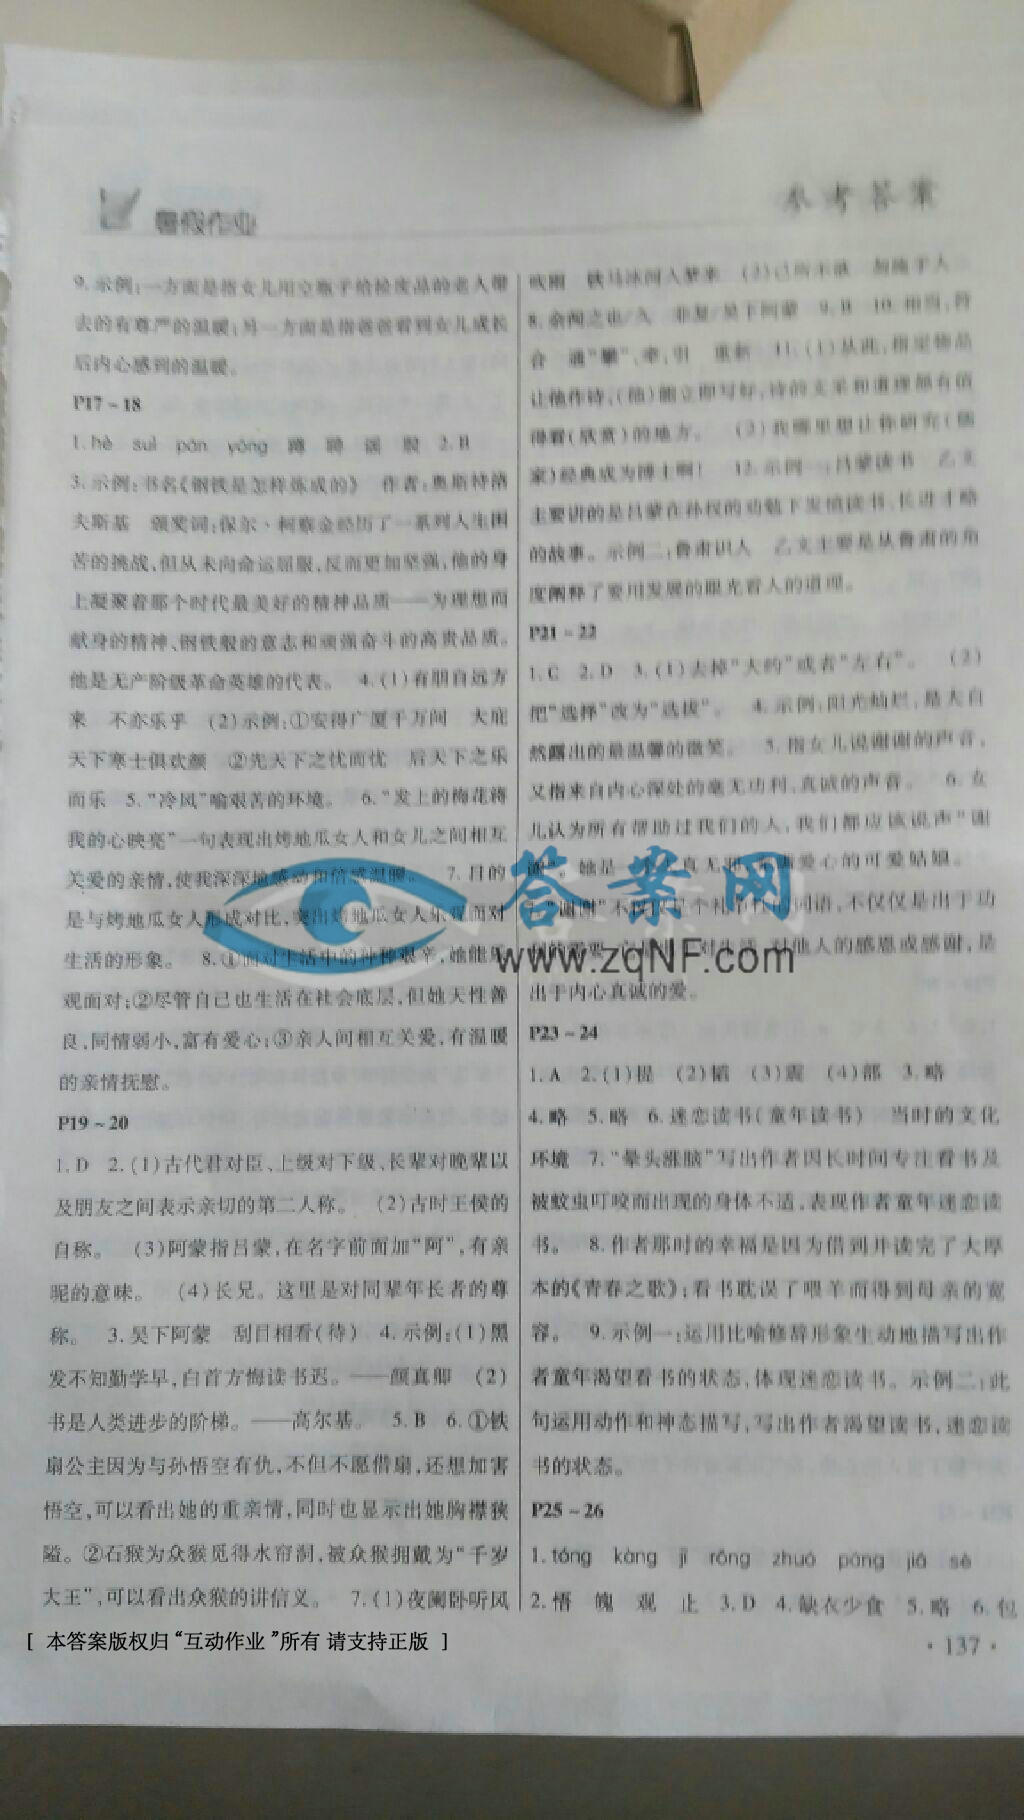 暑假作业
参考答案
9. 示例:一方面是指女儿用空瓶子给捡废品的老人带
去的有尊严的温暖;另一方面是指爸爸看到女儿成长
后内心感到的温暖。
P17~18
1. hè suì pán yōng 蹲 骋 谣 骰 2. B
3. 示例:书名《钢铁是怎样炼成的》 作者:奥斯特洛
夫斯基 颁奖词:保尔·柯察金经历了一系列人生困
苦的挑战,但从未向命运屈服,反而更加坚强,他的身
上凝聚着那个时代最美好的精神品质——为理想而
献身的精神、钢铁般的意志和顽强奋斗的高贵品质。
他是无产阶级革命英雄的代表。 4. (1)有朋自远方
来 不亦乐乎 (2)示例:①安得广厦千万间 大庇
天下寒士俱欢颜 ②先天下之忧而忧 后天下之乐
而乐 5. “冷风”喻艰苦的环境。 6. “发上的梅花将
我的心映亮”一句表现出烤地瓜女人和女儿之间相互
关爱的亲情,使我深深地感动和倍感温暖。 7. 目的
是与烤地瓜女人形成对比,突出烤地瓜女人乐观面对
生活的形象。 8. ①面对生活中的种种艰辛,她能乐
观面对;②尽管自己也生活在社会底层,但她天性善
良,同情弱小,富有爱心;③亲人间相互关爱,有温暖
的亲情抚慰。
P19~20
1. D 2. (1)古代君对臣、上级对下级、长辈对晚辈以
及朋友之间表示亲切的第二人称。 (2)古时王侯的
自称。 (3)阿蒙指吕蒙,在名字前面加“阿”,有亲
昵的意味。 (4)长兄。这里是对同辈年长者的尊
称。 3. 吴下阿蒙 刮目相看(待) 4. 示例:(1)黑
发不知勤学早,白首方悔读书迟。——颜真卿 (2)
书是人类进步的阶梯。——高尔基。 5. B 6. ①铁
扇公主因为与孙悟空有仇,不但不愿借扇,还想加害
悟空,可以看出她的重亲情,同时也显示出她胸襟狭
隘。②石猴为众猴觅得水帘洞,被众猴拥戴为“千岁
大王”,可以看出众猴的讲信义。 7. (1)夜阑卧听风
吹雨 铁马冰河入梦来 (2)己所不欲 勿施于人
8. 余闻之也/久 非复/吴下阿蒙 9. B 10. 相当,符
合 通“攀”,牵,引 重新 11. (1)从此,指定物品
让他作诗,(他)能立即写好,诗的文采和道理都有值
得看(欣赏)的地方。 (2)我哪里想让你研究(儒
家)经典成为博士啊! 12. 示例一:吕蒙读书 乙文
主要讲的是吕蒙在孙权的劝勉下发愤读书,长进才略
的故事。示例二:鲁肃识人 乙文主要是从鲁肃的角
度阐释了要用发展的眼光看人的道理。
P21~22
1. C 2. D 3. (1)去掉“大约”或者“左右”。 (2)
把“选择”改为“选拔”。 4. 示例:阳光灿烂,是大自
然露出的最温馨的微笑。 5. 指女儿说谢谢的声音,
又指来自内心深处的毫无功利、真诚的声音。 6. 女
儿认为所有帮助过我们的人,我们都应该说声“谢
谢”。她是一个天真无邪、充满爱心的可爱姑娘。
7. “谢谢”不仅仅是个礼节性的词语,不仅仅是出于功
利的需要,它是 对生活、对他人的感恩或感谢,是
出于内心真诚的爱。
P23~24
1. A 2. (1)提 (2)韬 (3)震 (4)部 3. 略
4. 略 5. 略 6. 迷恋读书(童年读书) 当时的文化
环境 7. “晕头涨脑”写出作者因长时间专注看书及
被蚊虫叮咬而出现的身体不适,表现作者童年迷恋读
书。 8. 作者那时的幸福是因为借到并读完了大厚
本的《青春之歌》;看书耽误了喂羊而得到母亲的宽
容。 9. 示例一:运用比喻修辞形象生动地描写出作
者童年渴望看书的状态,体现迷恋读书。示例二:此
句运用动作和神态描写,写出作者渴望读书,迷恋读
书的状态。
P25~26
1. tóng kàng jī rǒng zhuó páng jiá sè
2. 悟 魄 观 止 3. D 4. 缺衣少食 5. 略 6. 包
·137·
答案网
www.zqNF.com
[ 本答案版权归“互动作业”所有 请支持正版 ]